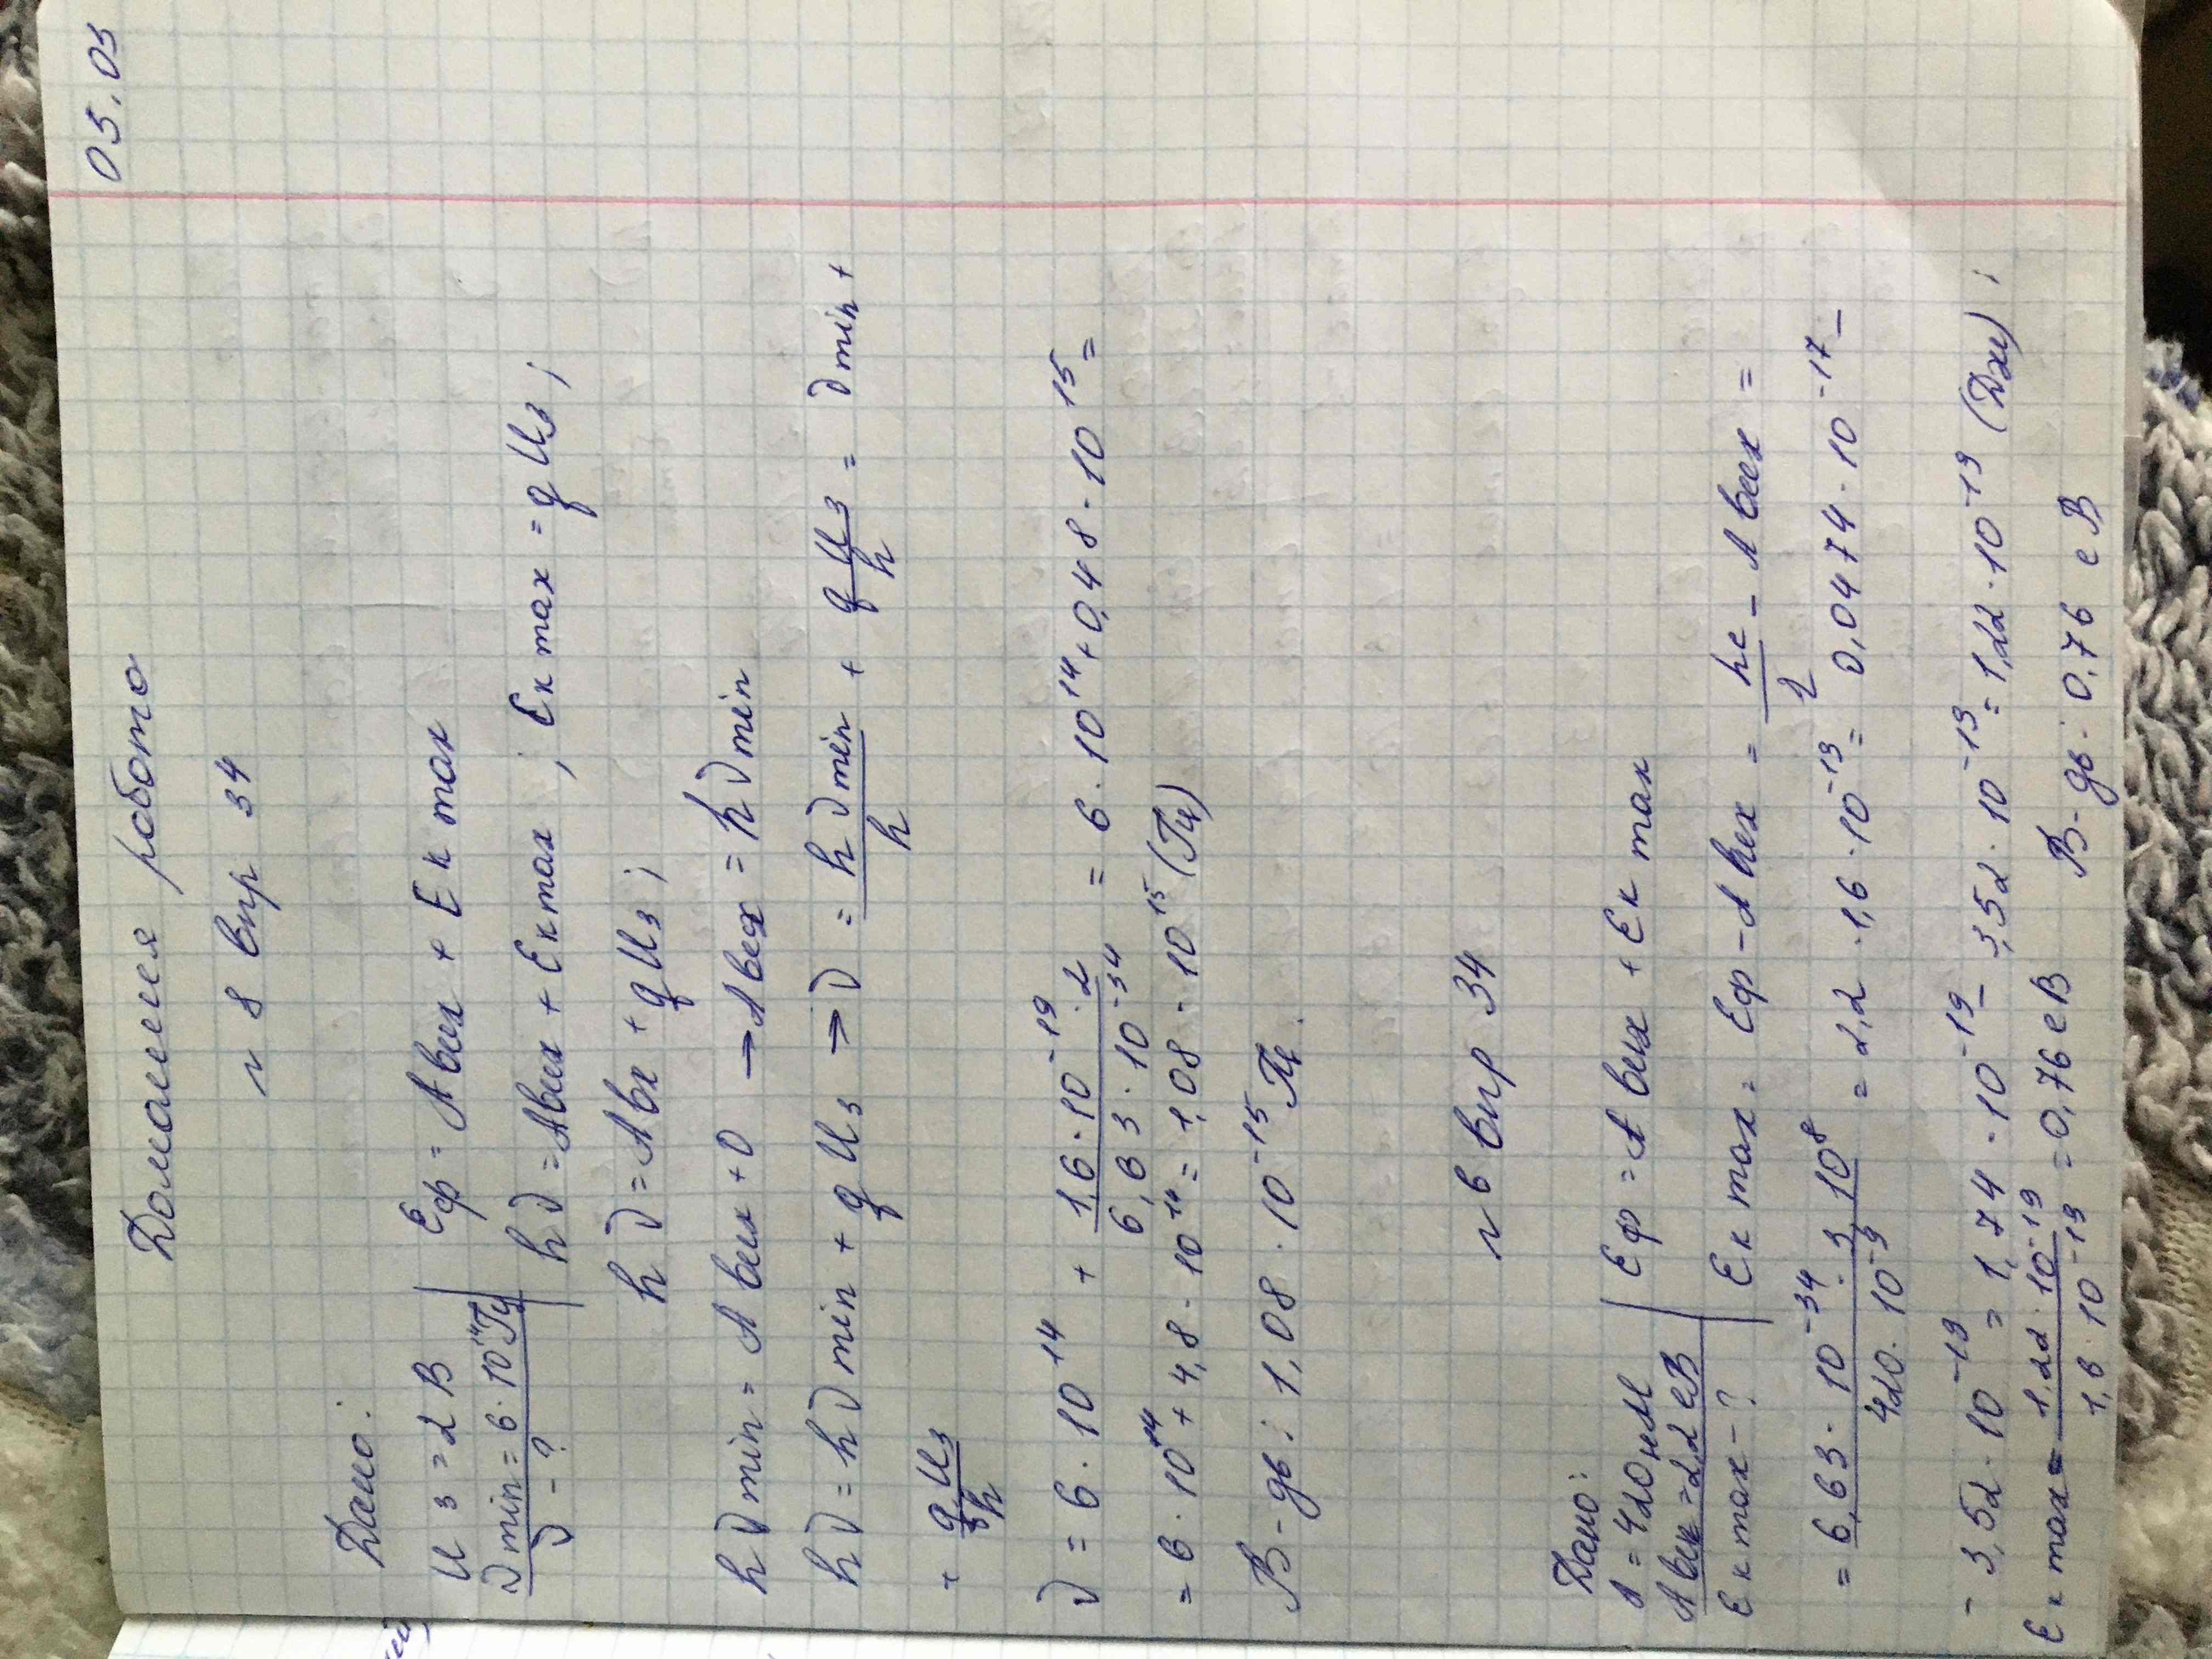 05.05
Домашня робота
№ 8 впр 34
Дано:
U з = 2 В
ν min = 6 · 10¹⁴ Гц
ν - ?
Eф = A вих + E к max
hν = Aвих + E к max ; E к max = q Uз ;
hν = Aвх + qUз ;
hν min = A вих + 0 → A вих = hν min
hν = hν min + q Uз → ν = hν min / h + q Uз / h = ν min +
+ q Uз / h
ν = 6 · 10¹⁴ + 1,6 · 10⁻¹⁹ · 2 / 6,63 · 10⁻³⁴ = 6 · 10¹⁴ + 0,48 · 10¹⁵ =
= 6 · 10¹⁴ + 4,8 · 10¹⁴ = 1,08 · 10¹⁵ (Гц)
В-дь: 1,08 · 10⁻¹⁵ Гц.
№ 6 впр 34
Дано:
λ = 420 нм
A вих = 2,2 еВ
E к max - ?
E ф = A вих + E к max
E к max = E ф - A вих = hc / λ - A вих =
= 6,63 · 10⁻³⁴ · 3 · 10⁸ / 420 · 10⁻⁹ = 2,2 · 1,6 · 10⁻¹⁹ = 0,0474 · 10⁻¹⁷ –
- 3,52 · 10⁻¹⁹ = 1,74 · 10⁻¹⁹ – 3,52 · 10⁻¹⁹ = 1,22 · 10⁻¹⁹ (Дж) ;
E к max = 1,22 · 10⁻¹⁹ / 1,6 · 10⁻¹⁹ = 0,76 еВ В-дь: 0,76 еВ